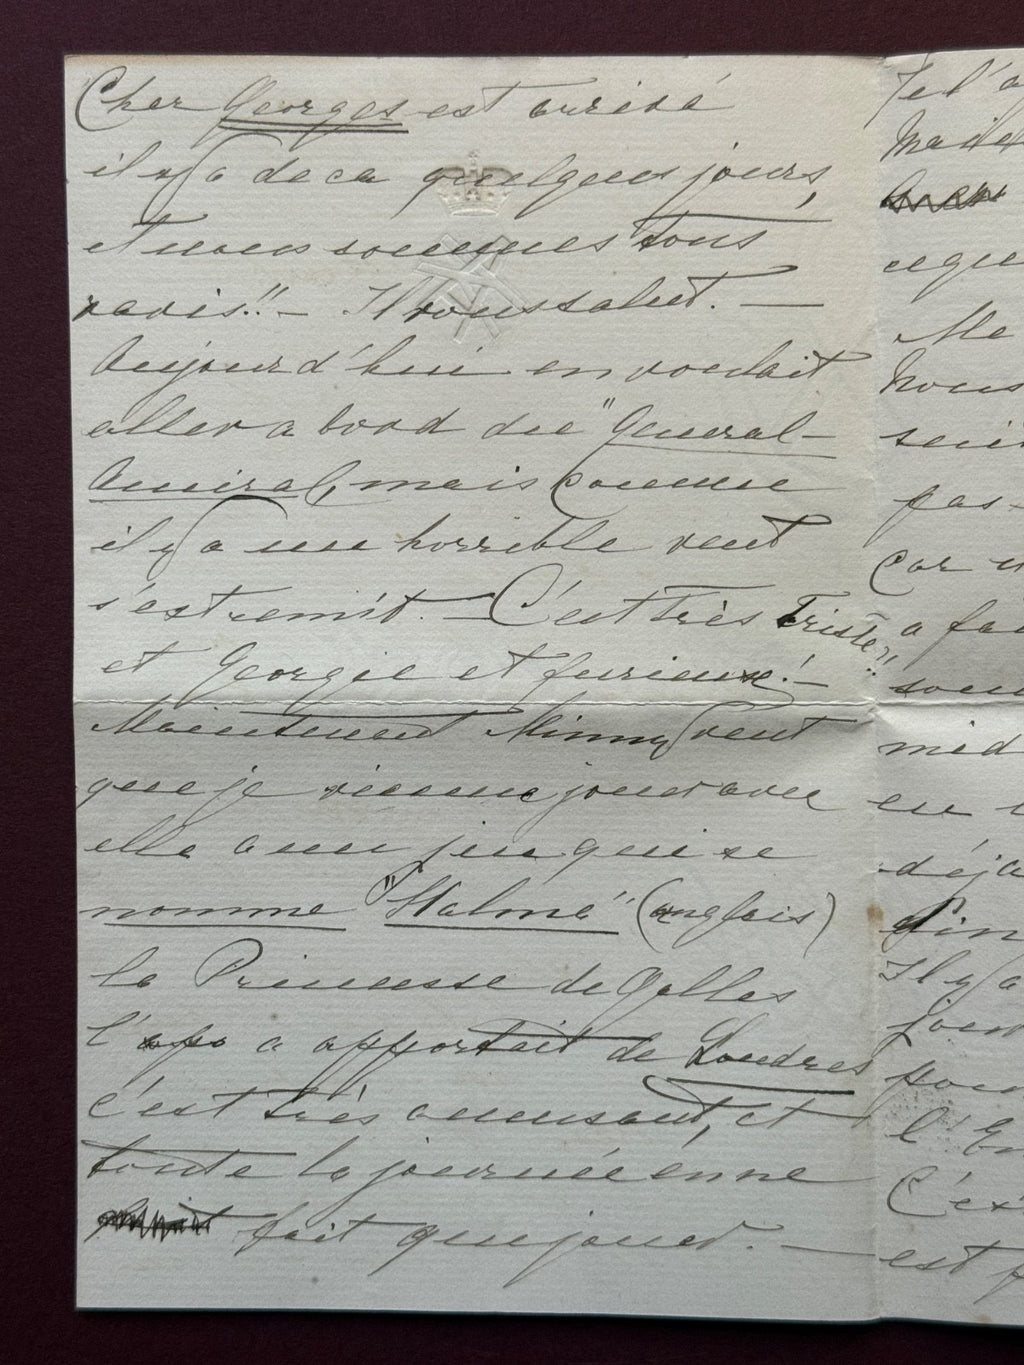 Cher Georges est arrivé
il y a deca quelques jours,
et nous sommes tous
ravis!! – Il vous salut. —
Aujourd'hui en voulait
aller a bord du "General-
Amiral, mais comme
il y a une horrible vent
s'est remit. – C'est très triste!!
et Georgie et furieux! –
Maintenant Minny veut
que je vienne jouer avec
elle a un jeu qui se
nomme "Halma" (anglais)
la Princesse de Galles
l'apo a apportait de Londres
c'est très amusant, et
toute la journée en ne
fait que jouer. —
Je l'a
Made
eque
Me
Nous
pas-
Car
a fa
sou
mid
en
déja
Il y a
jou
pou
l'En
C'es
est f